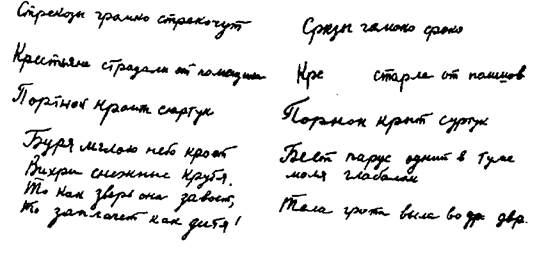 Стрекозы громко стрекочут
Крестьяне страдали от помещика
Портной кроит сюртук
Буря мглою небо кроет
Вихри снежные крутя.
То как зверь она завоет,
То заплачет как дитя!
Сркзы гамоко
Кре старле от помшов
Порнок крыт суртук
Беет парус однит в туме
моля глабалом
Тала грота выла во др двр.